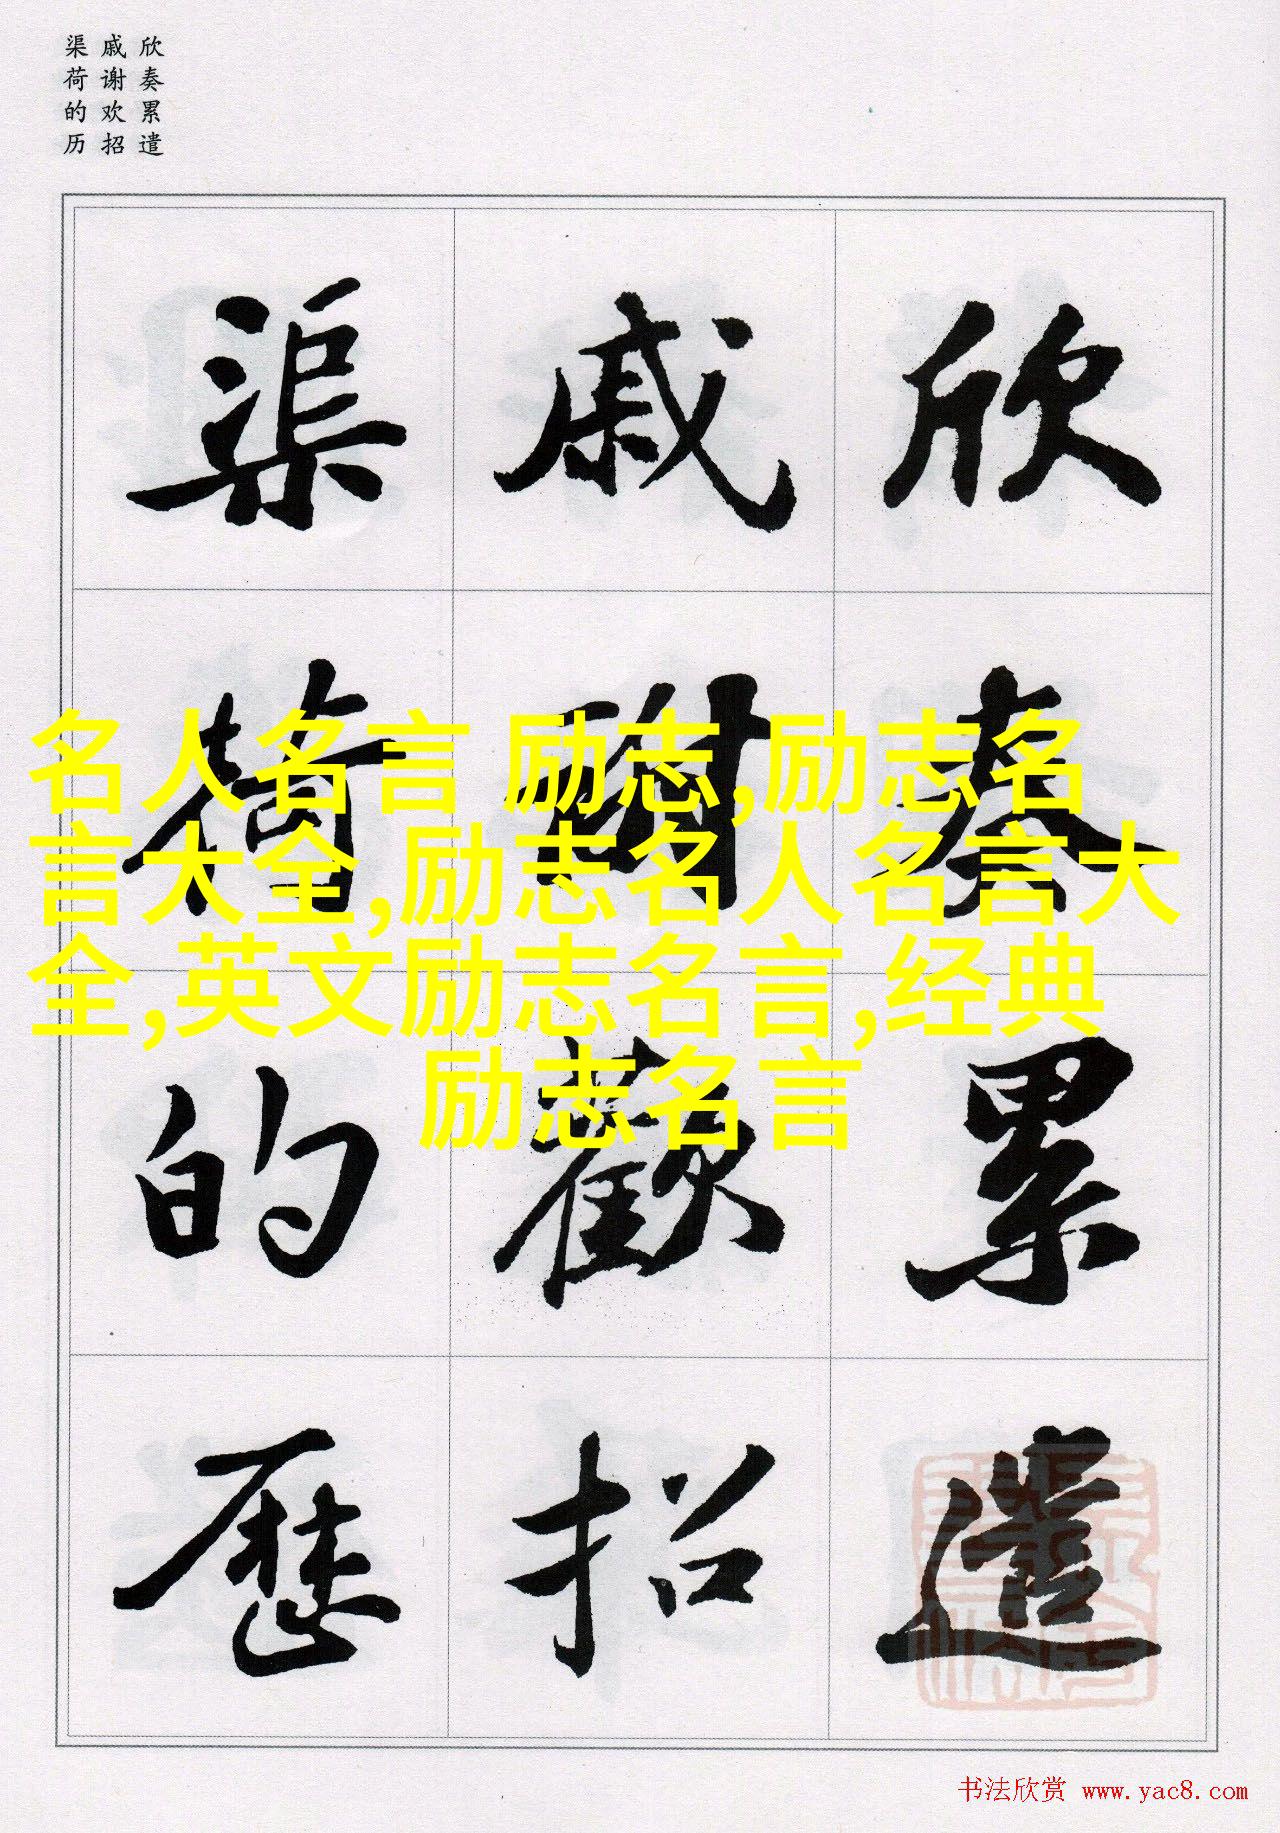 欣奏累遣
戚谢欢招
渠荷的历
欣奏累遣
戚謝歡招
渠荷的歷
名人名言 励志,励志名
言大全,励志名人名言大
全,英文励志名言,经典
励志名言
书法欣赏 www.yac8.com